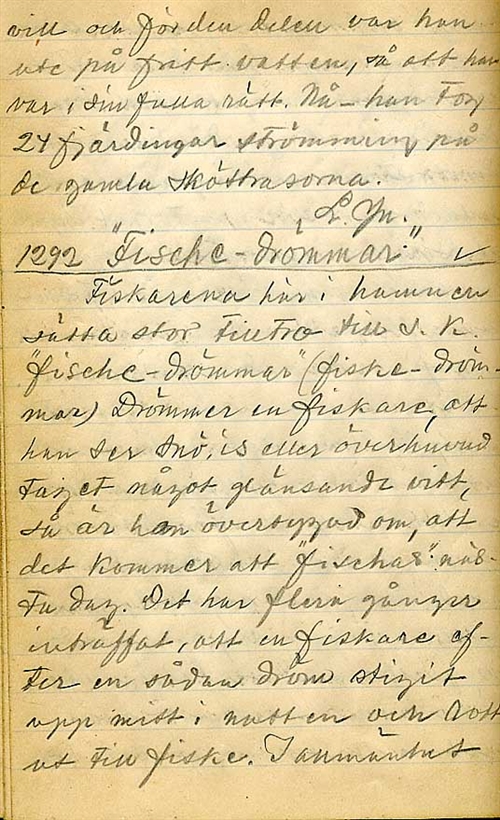 vill och för den delen var han
ute på fritt vatten, så att han
var i sin fulla rätt. Nå - han tog
24 fjärdingar strömming på
de gamla skötrasorna.
L. Yn.
1292 "Fische-drömmar." ✓
Fiskarena här i hamnen
sätta stor tilltro till s. k.
"fische-drömmar" (fiske-dröm-
mar) Drömmer en fiskare, att
han ser snö, is eller överhuvud
taget något glänsande vitt,
så är han övertygad om, att
det kommer att "fischas" näs-
ta dag. Det har flera gånger
inträffat, att en fiskare ef-
ter en sådan dröm stigit
upp mitt i natten och rott
ut till fiske. I allmänhet